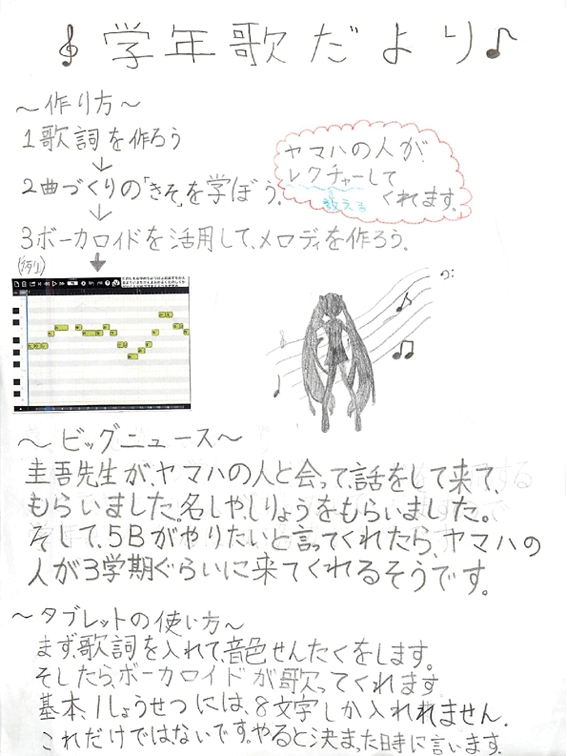 学年歌だより
～作り方～
1歌詞を作ろう
↓
2曲づくりの「きそ」を学ぼう。
ヤマハの人が
レクチャーして
教える
くれます。
↓
3ボーカロイドを活用して、メロディを作ろう。
(例)
～ビッグニュース～
圭吾先生が、ヤマハの人と会って、話をして来て、
もらいました。名しや、しりょうをもらいました。
そして、5Bがやりたいと言ってくれたら、ヤマハの
人が3学期ぐらいに来てくれるそうです。
～タブレットの使い方～
まず、歌詞を入れて、音色せんたくをします。
そしたら、ボーカロイドが歌ってくれます
基本、1しょうせつには、8文字しか入れれません。
これだけではないです。やると決まった時に言います。